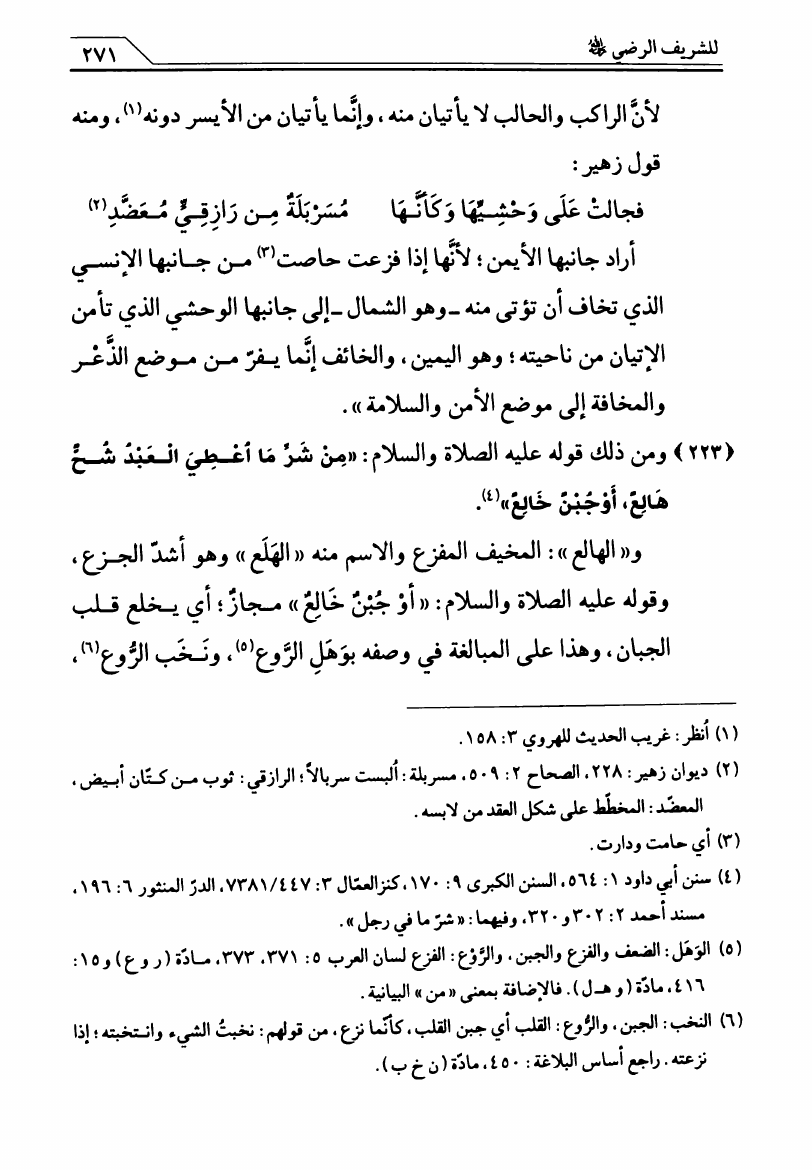 للشريف الرضي ﷺ
٢٧١
لأنَّ الراكب والحالب لا يأتيان منه ، وإنَّما يأتيان من الأيسر دونه(١)، ومنه
قول زهير :
فجالتْ عَلَى وَحْشِيِّهَا وَكَأَنَّهَا مُسَرْبَلَةٌ مِن رَازِقِيٍّ مُعَضَّدِ(٢)
أراد جانبها الأيمن ؛ لأنَّها إذا فزعت حاصت(٣) من جانبها الإنسي
الذي تخاف أن تؤتى منه ـ وهو الشمال ـ إلى جانبها الوحشي الذي تأمن
الإتيان من ناحيته ؛ وهو اليمين ، والخائف إنَّما يفرّ من موضع الذُّعْر
والمخافة إلى موضع الأمن والسلامة » .
(٢٢٣) ومن ذلك قوله عليه الصلاة والسلام : «مِنْ شَرِّ مَا أُعْطِيَ الْعَبْدُ شُحٌّ
هَالِعٌ، أَوْ جُبْنٌ خَالِعٌ»(٤).
و« الهالع » : المخيف المفزع والاسم منه « الهَلَع » وهو أشدّ الجزع ،
وقوله عليه الصلاة والسلام : « أوْ جُبْنٌ خَالِعٌ » مجازٌ ؛ أي يخلع قلب
الجبان ، وهذا على المبالغة في وصفه بوَهَلِ الرَّوع(٥) ، ونَخَب الرُّوع(٦) ،
(١) اُنظر : غريب الحديث للهروي ٣ : ١٥٨ .
(٢) ديوان زهير : ٢٢٨ ، الصحاح ٢ : ٥٠٩ ، مسربلة : اُلبست سربالاً ؛ الرازقي : ثوب من كتّان أبيض ،
المعضّد : المخطّط على شكل العقد من لابسه .
(٣) أي حامت ودارت .
(٤) سنن أبي داود ١ : ٥٦٤ ، السنن الكبرى ٩ : ١٧٠ ، كنز العمّال ٣ : ٧٣٨١/٤٤٧ ، الدرّ المنثور ٦ : ١٩٦ ،
مسند أحمد ٢ : ٣٠٢ و ٣٢٠ ، وفيهما : « شرّ ما في رجل » .
(٥) الوَهَل : الضعف والفزع والجبن ، والرَّوْع : الفزع لسان العرب ٥ : ٣٧١ ، ٣٧٣ ، مادّة ( ر و ع ) و١٥ :
٤١٦ ، مادّة ( و هـ ل ) . فالإضافة بمعنى « من » البيانية .
(٦) النخب : الجبن ، والرُّوع : القلب أي جبن القلب ، كأنّما نزع ، من قولهم : نخبتُ الشيء وانتخبته ؛ إذا
نزعته . راجع أساس البلاغة : ٤٥٠ ، مادّة ( ن خ ب ) .